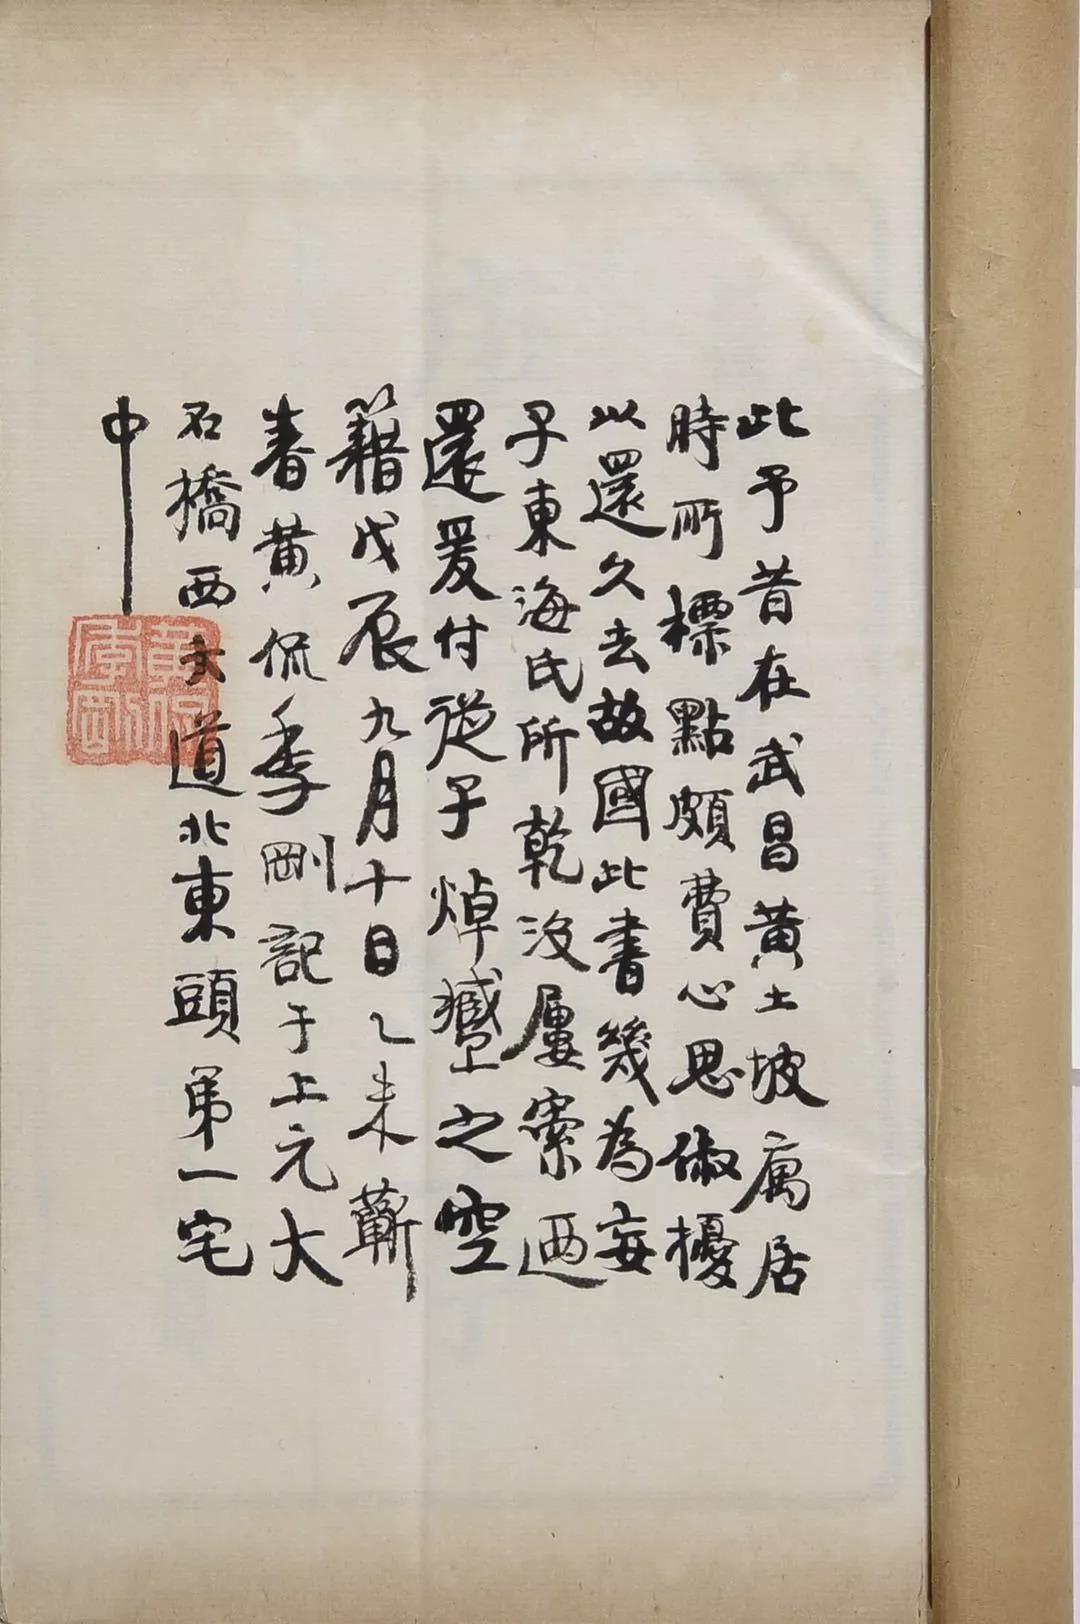 此予昔在武昌黃土坡寓居
時所標點頗費心思俶擾
以還久去故國此書幾為妄
子東海氏所乾沒屢索迺
還爰付從子焯藏之空
籍戊辰九月十日乙未蘄
春黃侃季剛記于上元大
石橋西大道北東頭第一宅
中
黃侃季剛